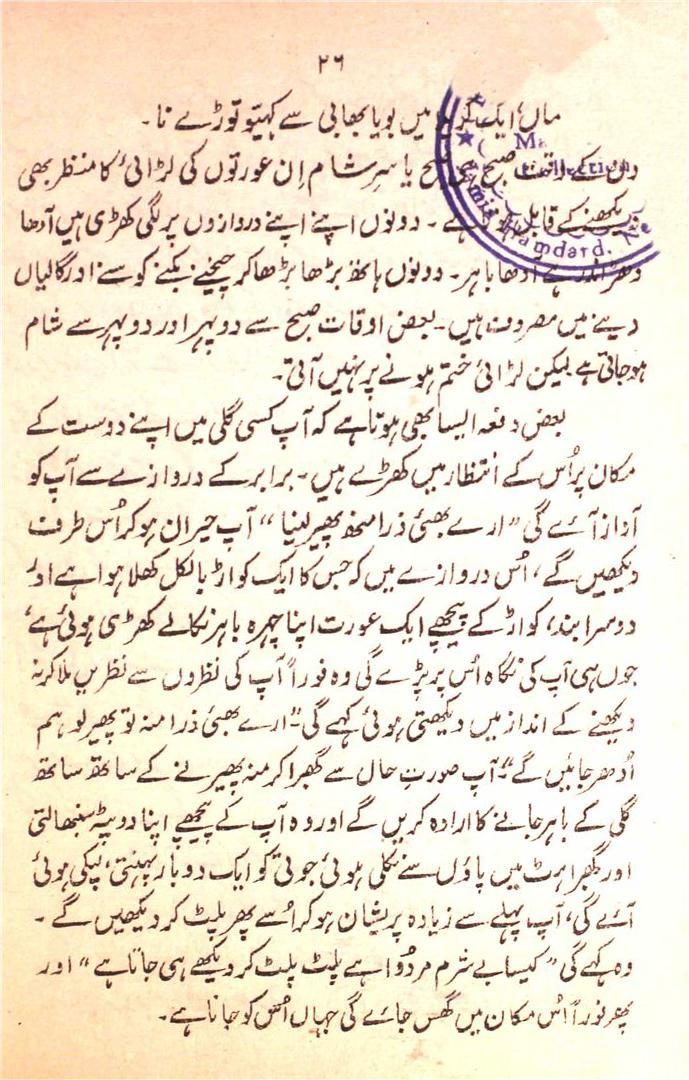 ۲۶
ماں، ایک کرلو میں بویا بھابی سے کہیتو توڑے نا۔
دن کے وقت صبح ہی صبح یا سرِ شام اِن عورتوں کی لڑائی کا منظر بھی
دیکھنے کے قابل ہے۔ دونوں اپنے اپنے دروازوں پر لگی کھڑی ہیں آدھا
دھڑ اندر ہے آدھا باہر۔ دونوں ہاتھ بڑھا بڑھا کر چیخنے بکنے کوسنے اور گالیاں
دینے میں مصروف ہیں۔ بعض اوقات صبح سے دوپہر اور دوپہر سے شام
ہو جاتی ہے لیکن لڑائی ختم ہونے پر نہیں آتی۔
بعض دفعہ ایسا بھی ہوتا ہے کہ آپ کسی گلی میں اپنے دوست کے
مکان پر اُس کے انتظار میں کھڑے ہیں۔ برابر کے دروازے سے آپ کو
آواز آئے گی "ارے بھئی ذرا منھ پھیر لینا" آپ حیران ہو کر اُس طرف
دیکھیں گے، اُس دروازے میں کہ جس کا ایک کواڑ بالکل کھلا ہوا ہے اور
دوسرا بند، کواڑ کے پیچھے ایک عورت اپنا چہرہ باہر نکالے کھڑی ہوئی ہے،
جوں ہی آپ کی نگاہ اُس پر پڑے گی وہ فوراً آپ کی نظروں سے نظریں ملا کر نہ
دیکھنے کے انداز میں دیکھتی ہوئی کہے گی۔ "ارے بھئی ذرا منہ تو پھیر لو ہم
اُدھر جائیں گے"۔ آپ صورتِ حال سے گھبرا کر منہ پھیرنے کے ساتھ ساتھ
گلی کے باہر جانے کا ارادہ کریں گے اور وہ آپ کے پیچھے اپنا دوپٹہ سنبھالتی
اور گھبراہٹ میں پاؤں سے نکلی ہوئی جوتی کو ایک دو بار پہنتی، لپکی ہوئی
آئے گی، آپ پہلے سے زیادہ پریشان ہو کر اُسے پھر پلٹ کر دیکھیں گے۔
وہ کہے گی "کیسا بے شرم مردُوا ہے پلٹ پلٹ کر دیکھے ہی جاتا ہے" اور
پھر فوراً اُس مکان میں گھس جائے گی جہاں اُس کو جانا ہے۔
Collection
Hamdard. Ne